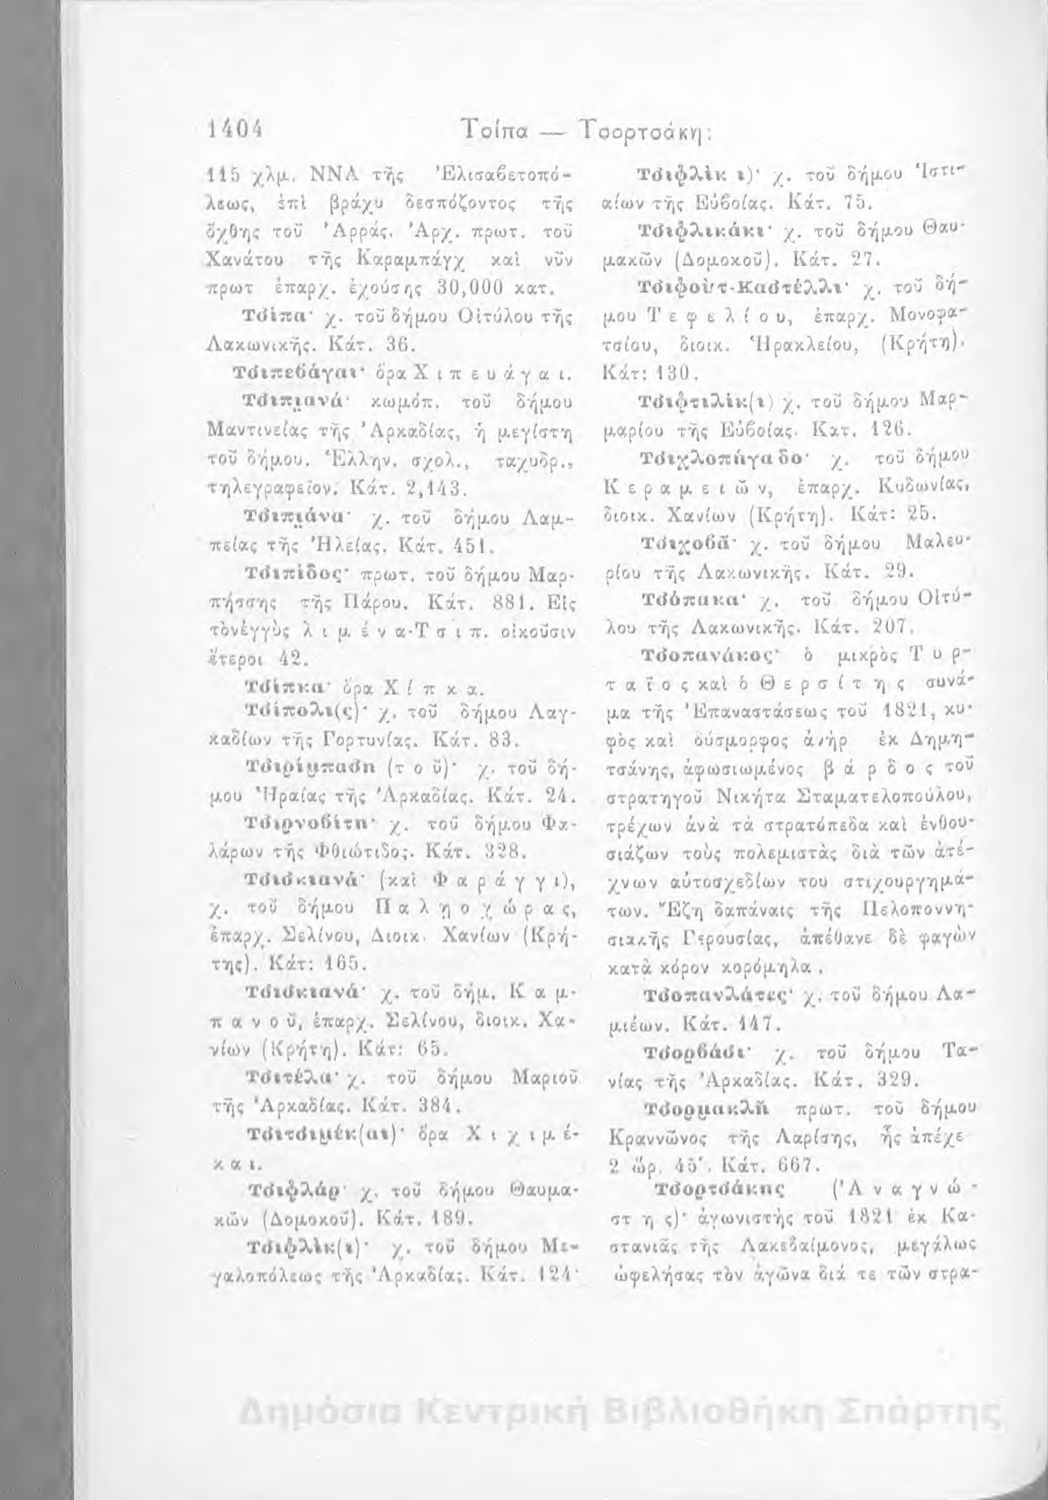 1404 Τσίπα — Τσορτσάκη:
115 χλμ. ΝΝΑ τῆς Ἐλισαβετοπό-
λεως, ἐπὶ βράχυ δεσπόζοντος τῆς
ὄχθης τοῦ Ἀρράς. Ἀρχ. πρωτ. τοῦ
Χανάτου τῆς Καραμπάγχ καὶ νῦν
πρωτ ἐπαρχ. ἐχούσης 30,000 κατ.
Τσίπα· χ. τοῦ δήμου Οἰτύλου τῆς
Λακωνικῆς. Κάτ. 36.
Τσιπεβάγαι· ὅρα Χ ι π ε υ ά γ α ι.
Τσιπιανά· κωμόπ. τοῦ δήμου
Μαντινείας τῆς Ἀρκαδίας, ἡ μεγίστη
τοῦ δήμου. Ἑλλην. σχολ., ταχυδρ.,
τηλεγραφεῖον. Κάτ. 2,143.
Τσιπιάνα· χ. τοῦ δήμου Λαμ-
πείας τῆς Ἠλείας. Κάτ. 451.
Τσιπίδος· πρωτ. τοῦ δήμου Μαρ-
πήσσης τῆς Πάρου. Κάτ. 881. Εἰς
τὸνἐγγὺς λ ι μ έ ν α-Τ σ ι π. οἰκοῦσιν
ἕτεροι 42.
Τσίπκα· ὅρα Χ ί π κ α.
Τσίπολι(ς)· χ. τοῦ δήμου Λαγ-
καδίων τῆς Γορτυνίας. Κάτ. 83.
Τσιρίμπαση (τ ο ῦ)· χ. τοῦ δή-
μου Ἡραίας τῆς Ἀρκαδίας. Κάτ. 24.
Τσιρνοβίτη· χ. τοῦ δήμου Φα-
λάρων τῆς Φθιώτιδος. Κάτ. 328.
Τσισκιανά· (καὶ Φ α ρ ά γ γ ι),
χ. τοῦ δήμου Π α λ ῃ ο χ ώ ρ α ς,
ἐπαρχ. Σελίνου, Διοικ. Χανίων (Κρή-
της). Κάτ: 165.
Τσισκιανά· χ. τοῦ δήμ. Κ α μ-
π α ν ο ῦ, ἐπαρχ. Σελίνου, διοικ. Χα-
νίων (Κρήτη). Κάτ: 65.
Τσιτέλα· χ. τοῦ δήμου Μαριοῦ
τῆς Ἀρκαδίας. Κάτ. 384.
Τσιτσιμέκ(αι)· ὅρα Χ ι χ ι μ έ-
κ α ι.
Τσιφλάρ· χ. τοῦ δήμου Θαυμα-
κῶν (Δομοκοῦ). Κάτ. 189.
Τσιφλίκ(ι)· χ. τοῦ δήμου Με-
γαλοπόλεως τῆς Ἀρκαδίας. Κάτ. 124·
Τσιφλίκ ι)· χ. τοῦ δήμου Ἱστι-
αίων τῆς Εὐβοίας. Κάτ. 75.
Τσιφλικάκι· χ. τοῦ δήμου Θαυ-
μακῶν (Δομοκοῦ). Κάτ. 27.
Τσιφοὺτ-Καστέλλι· χ. τοῦ δή-
μου Τ ε φ ε λ ί ο υ, ἐπαρχ. Μονοφα-
τσίου, διοικ. Ἡρακλείου, (Κρήτη).
Κάτ: 130.
Τσιφτιλίκ(ι) χ. τοῦ δήμου Μαρ-
μαρίου τῆς Εὐβοίας. Κατ. 126.
Τσιχλοπήγαδο· χ. τοῦ δήμου
Κ ε ρ α μ ε ι ῶ ν, ἐπαρχ. Κυδωνίας,
διοικ. Χανίων (Κρήτη). Κάτ: 25.
Τσιχοβᾶ· χ. τοῦ δήμου Μαλευ-
ρίου τῆς Λακωνικῆς. Κάτ. 29.
Τσόπακα· χ. τοῦ δήμου Οἰτύ-
λου τῆς Λακωνικῆς. Κάτ. 207.
Τσοπανάκος· ὁ μικρὸς Τ υ ρ-
τ α ῖ ο ς καὶ ὁ Θ ε ρ σ ί τ η ς συνά-
μα τῆς Ἐπαναστάσεως τοῦ 1821, κυ-
φὸς καὶ δύσμορφος ἀνὴρ ἐκ Δημη-
τσάνης, ἀφωσιωμένος β ά ρ δ ο ς τοῦ
στρατηγοῦ Νικήτα Σταματελοπούλου,
τρέχων ἀνὰ τὰ στρατόπεδα καὶ ἐνθου-
σιάζων τοὺς πολεμιστὰς διὰ τῶν ἀτέ-
χνων αὐτοσχεδίων του στιχουργημά-
των. Ἔζη δαπάναις τῆς Πελοποννη-
σιακῆς Γερουσίας, ἀπέθανε δὲ φαγὼν
κατὰ κόρον κορόμηλα.
Τσοπανλάτες· χ. τοῦ δήμου Λα-
μιέων. Κάτ. 147.
Τσορβάσι· χ. τοῦ δήμου Τα-
νίας τῆς Ἀρκαδίας. Κάτ. 329.
Τσορμακλῆ πρωτ. τοῦ δήμου
Κραννῶνος τῆς Λαρίσης, ἧς ἀπέχε
2 ὥρ. 45'. Κάτ. 667.
Τσορτσάκης (Ἀ ν α γ ν ώ -
στ η ς)· ἀγωνιστὴς τοῦ 1821 ἐκ Κα-
στανιᾶς τῆς Λακεδαίμονος, μεγάλως
ὠφελήσας τὸν ἀγῶνα διά τε τῶν στρα-
Δημόσια Κεντρική Βιβλιοθήκη Σπάρτης